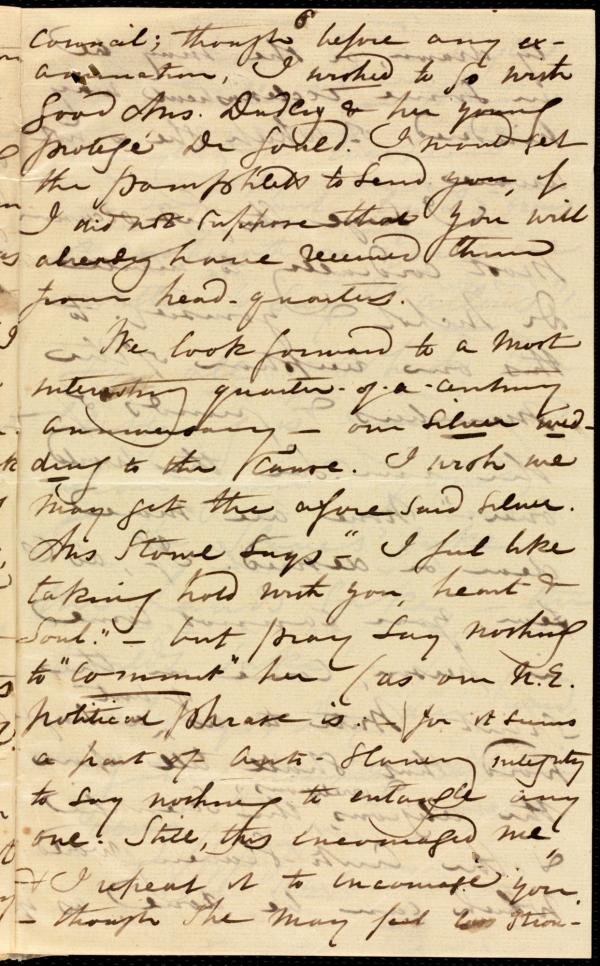 6
Council; though before any ex-
amination, I wished to go with
good Mrs. Dudley & her young
protegé Dr Gould. I would get
the pamphlets to send you, if
I did not suppose that you will
already have received them
from head-quarters.
We look forward to a most
interesting quarter-of-a-century
anniversary – our silver wed-
ding to the Cause. I wish we
may get the aforesaid silver.
Mrs Stowe says – "I feel like
taking hold with you, heart &
soul." – but pray say nothing
to "commit" her (as our N.E.
political phrase is. –) for it seems
a part of Anti-Slavery integrity
to say nothing to entangle any
one. Still, this encouraged me,
& I repeat it to encourage you,
– though she may feel less stron-